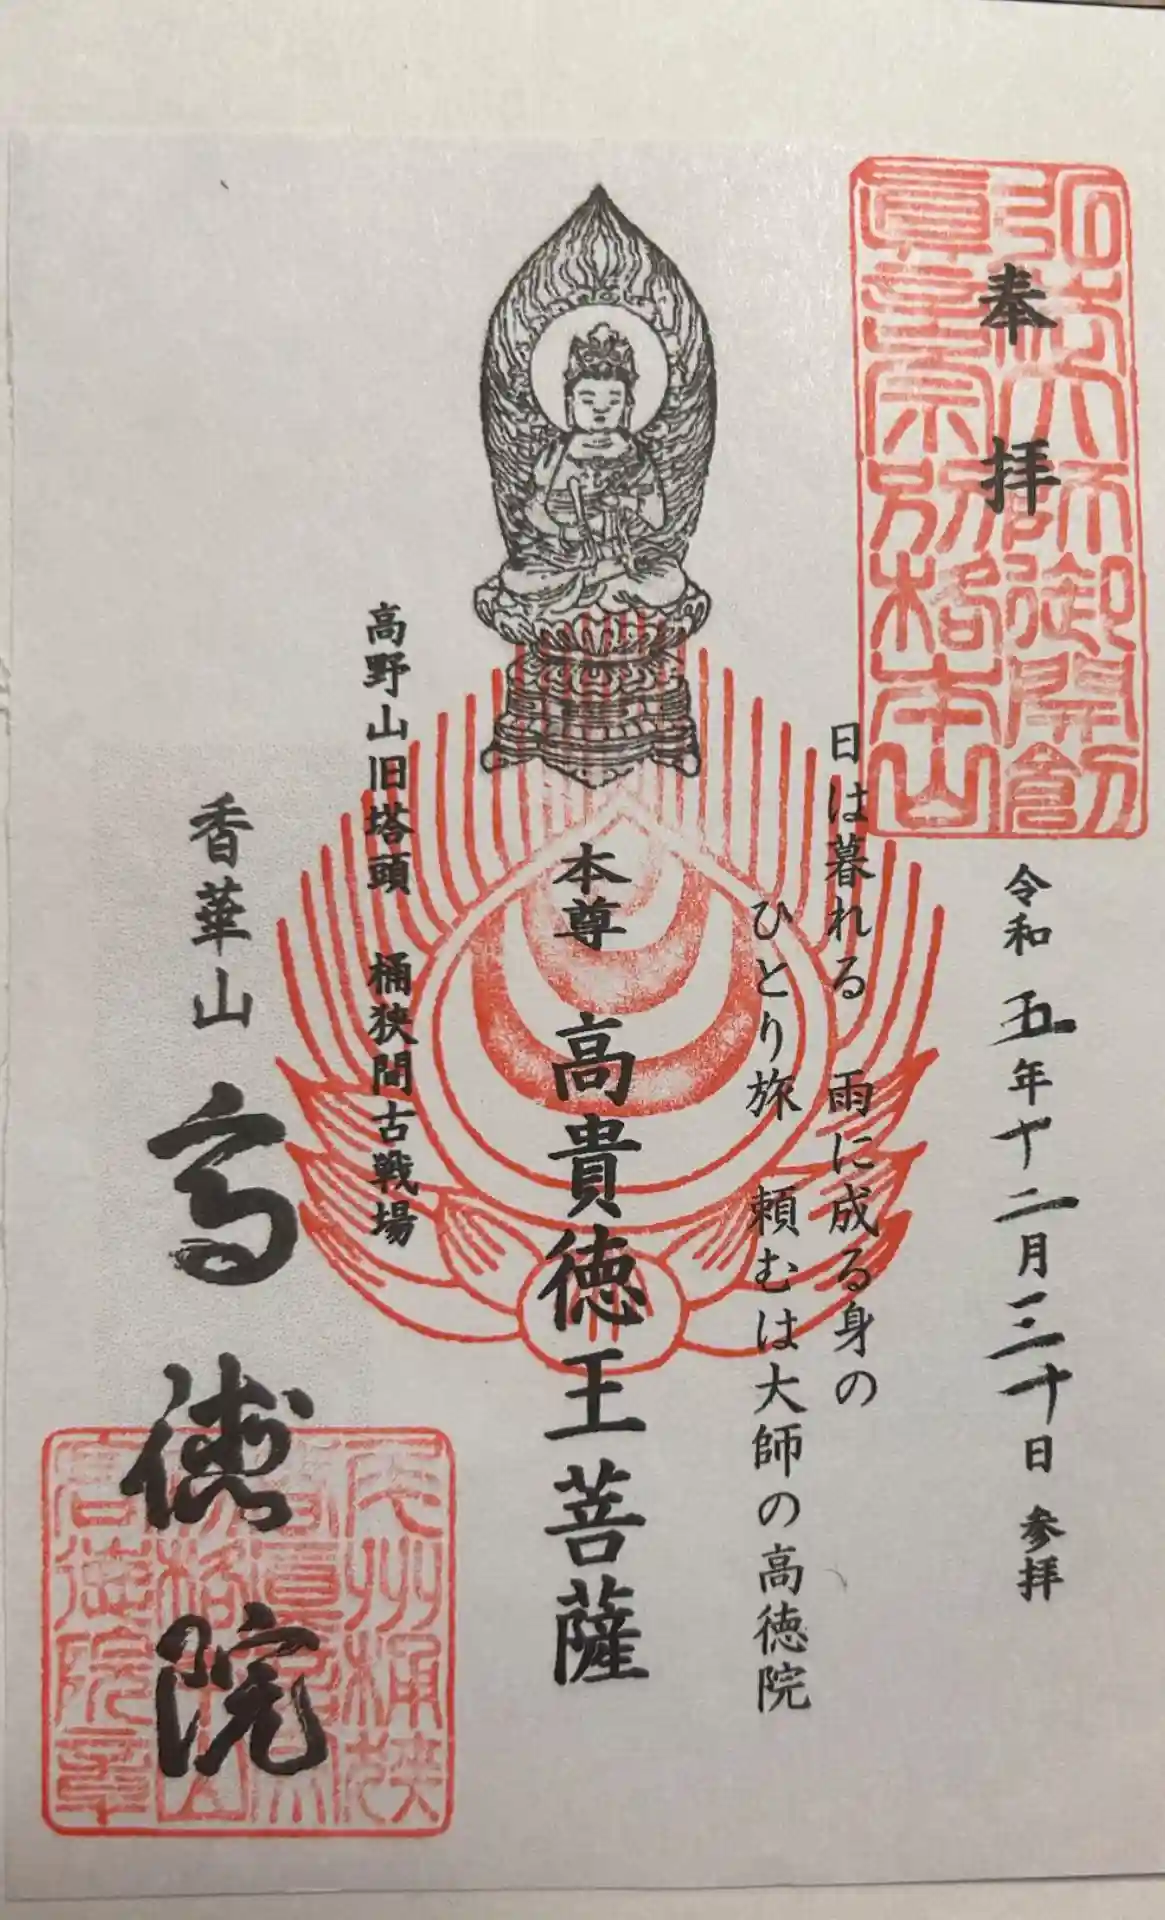 奉拝
弘法大師御開創
眞言宗別格本山
令和五年十二月三十日 参拝
日は暮れる 雨に成る身の
ひとり旅 頼むは大師の高徳院
本尊 高貴徳王菩薩
高野山旧塔頭 桶狭間古戦場
香華山 高徳院